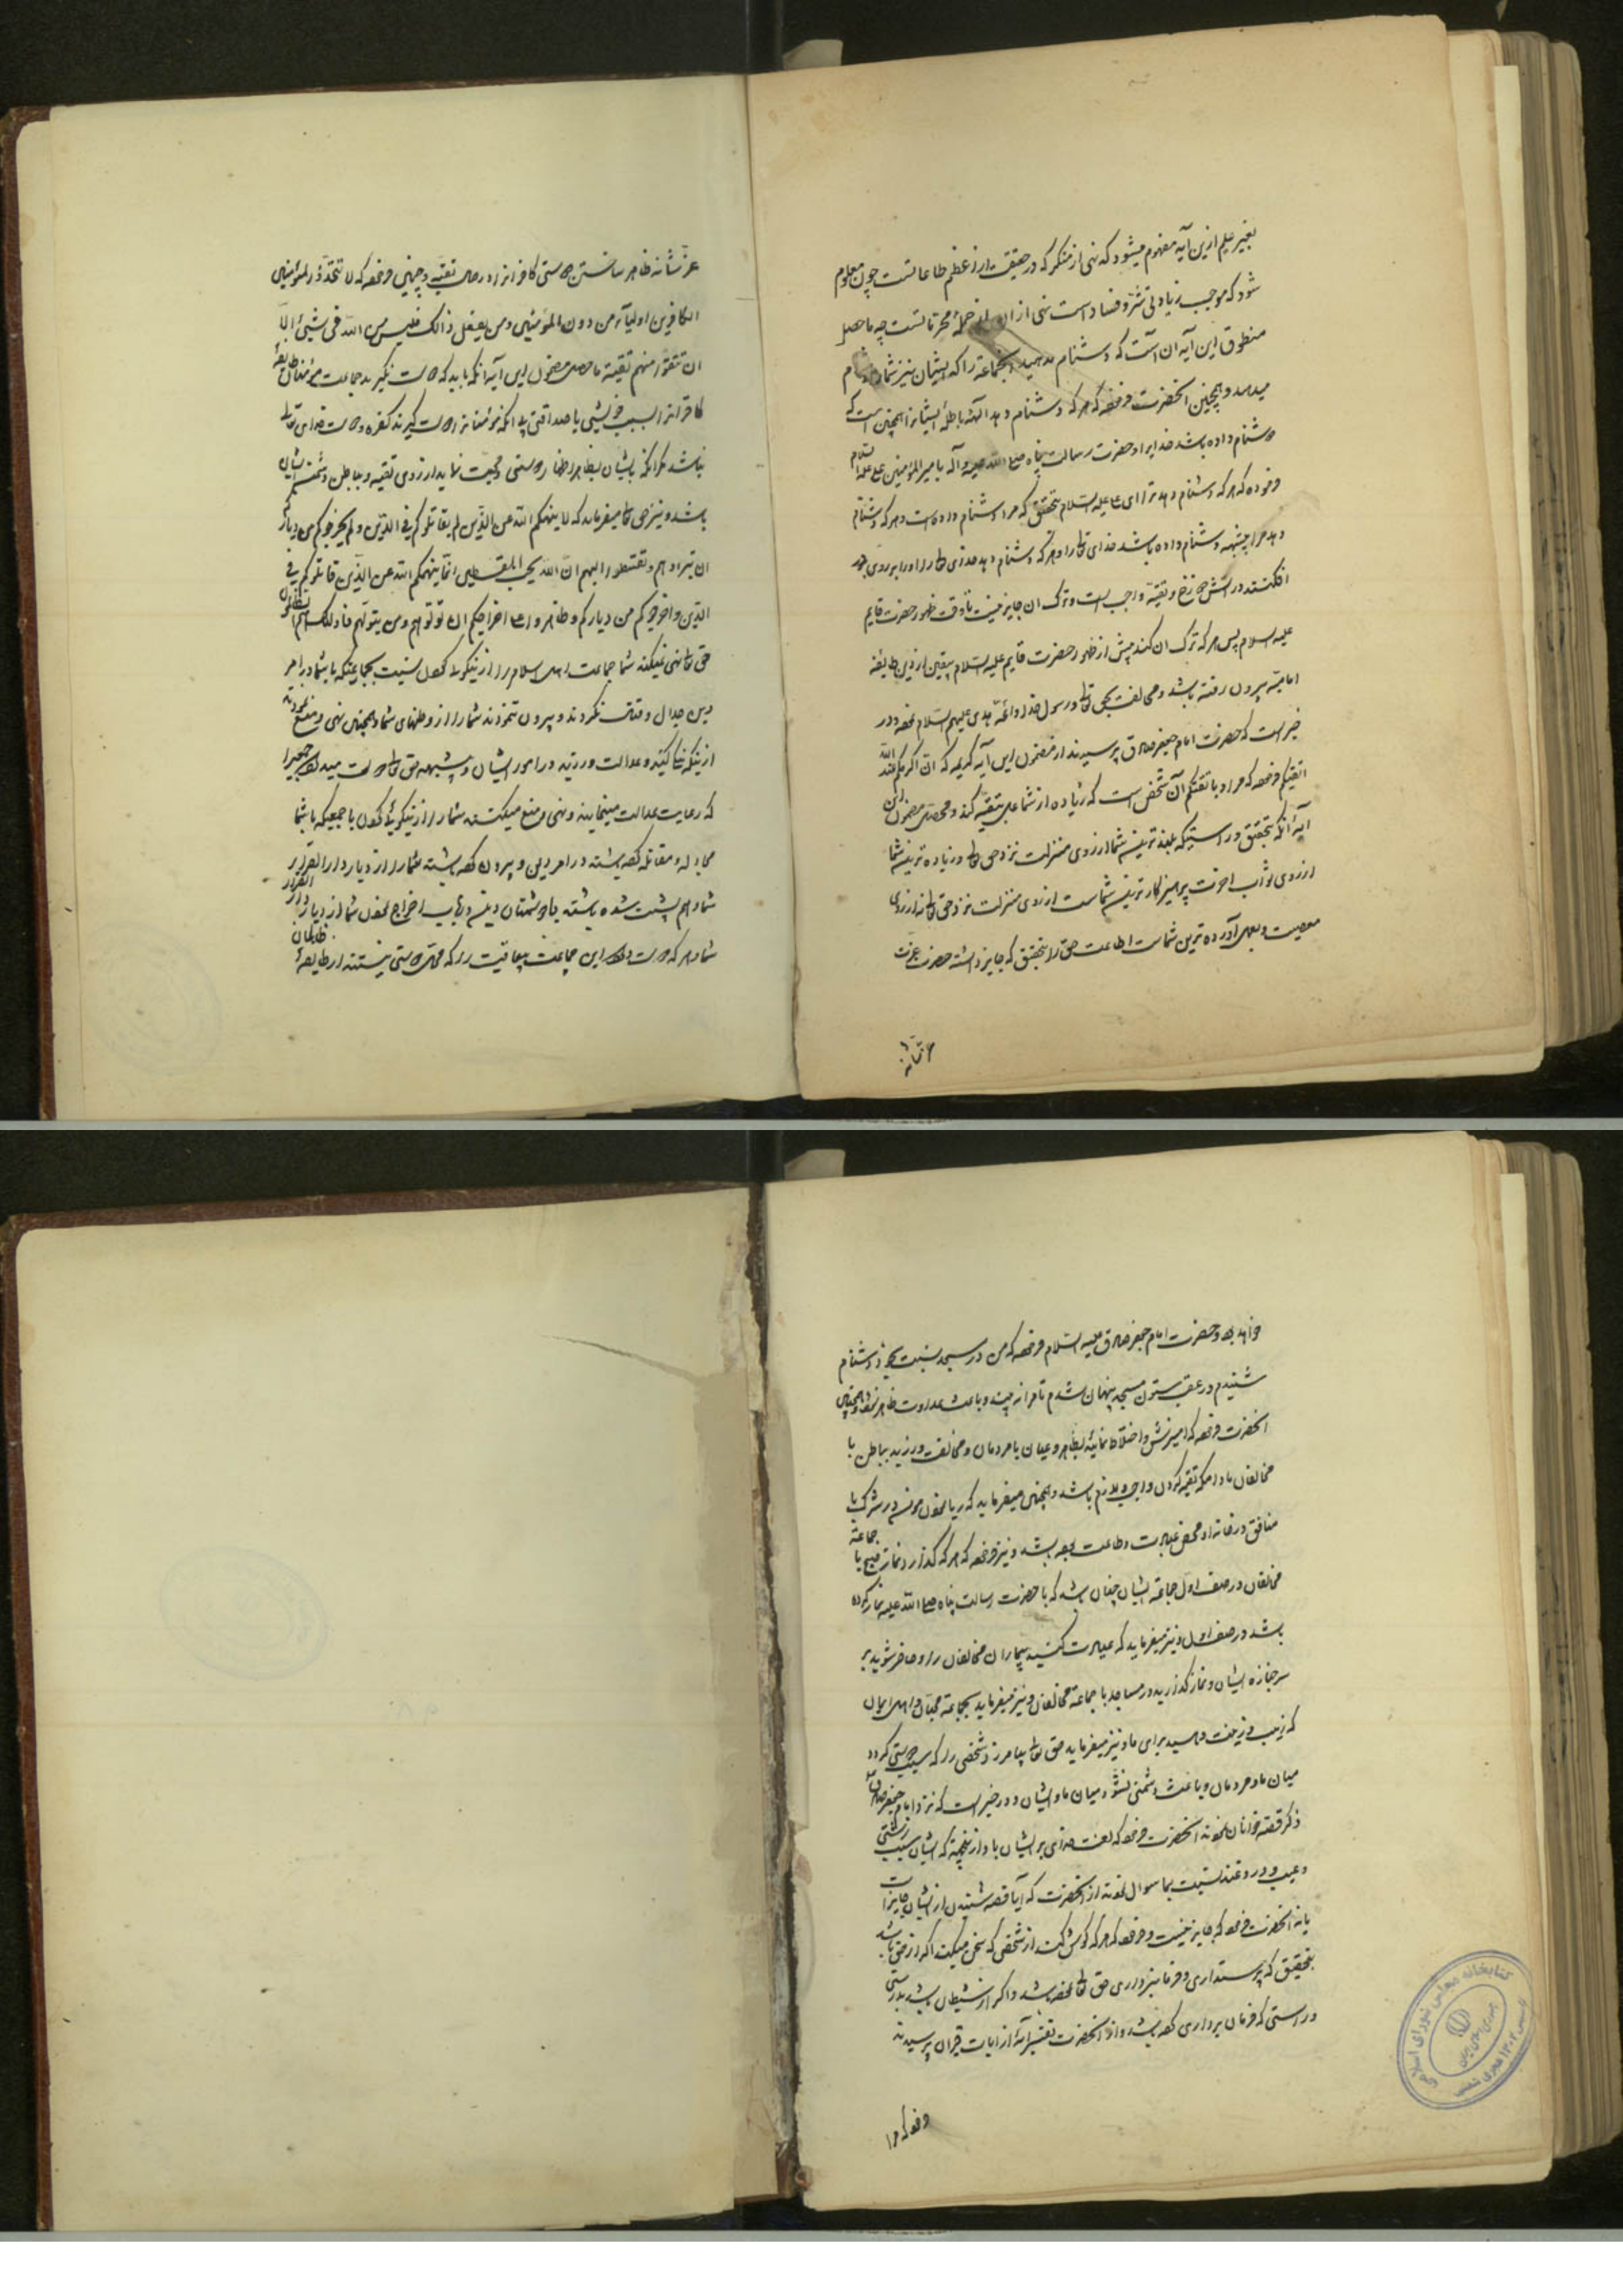 بغیر علم ازین آیه مفهوم میشود که نهی از منکر که در حقیقت از اعظم طاعاتست چون معلوم
شود که موجب زیادتی شر و فساد است نهی از ان از جملهٔ محرماتست چه ماحصل
منطوق این آیه آن است که دشنام مدهید جماعة را که ایشان نیز شما را دشنام
میدهند و همچنین انحضرت فرموده که هر که دشنام دهد الهه باطلهٔ ایشانرا همچنین است که
دشنام داده باشد خدایرا و حضرت رسالت پناه صلی الله علیه و آله بامیرالمؤمنین علی علیه السلام
فرموده که هر که دشنام دهد ترا ای علی علیه السلام بتحقیق که مرا دشنام داده است و هر که دشنام
دهد مرا چنینه دشنام داده باشد خدای تعالی را و هر که دشنام دهد خدای تعالی را او را بر روی خود
افکنند در آتش دوزخ و تقیه واجب است و ترک ان جایز نیست تا وقت ظهور حضرت قایم
علیه السلام پس هر که ترک ان کند پیش از ظهور حضرت قایم علیه السلام بیقین از دین طایفه
امامیه بیرون رفته باشد و مخالفت بحق تعالی و رسول خدا و ائمه هدی علیهم السلام نموده و در
خبر است که حضرت امام جعفر صادق پرسیدند از مضمون این آیه کریمه که ان اکرمکم عند الله
اتقیکم فرموده که مراد باتقیکم آن شخص است که زیاده از شما عمل بتقیه کند و محصل مضمون این
آیه آنکه بتحقیق و راستیکه بلند ترین شما از روی منزلت نزد حق تعالی و زیاده ترین شما
از روی ثواب اخرت پرهیزکار ترین شماست از روی منزلت نزد حق تعالی نه از روی
معصیت و بعمل آورده ترین شماست اطاعت حق را بتحقیق که جایز داشته حضرت عزت
عزشانه ظاهر ساختن دوستی کافرانرا در حال تقیه و چنین فرموده که لا تتخذ المؤمنین
الکافرین اولیاء من دون المؤمنین و من یفعل ذالک فلیس من الله فی شیئ الا
ان تتقوا منهم تقیة ماحصل مضمون این آیه آنکه باید که دوست نگیرند جماعت مؤمنان طایفهٔ
کافرانرا بسبب خویشی یا صداقتی بلا انکه مؤمنانرا دوست گیرند کفره دوست خدای تعالی
نباشد مگر آنکه بایشان بظاهر اظهار دوستی و محبت نماید از روی تقیه و بباطن دشمن ایشان
باشد و نیز حق تعالی میفرماید که لا ینهیکم الله عن الذین لم یقاتلوکم فی الدین و لم یخرجوکم من دیارکم
ان تبروهم و تقسطوا الیهم ان الله یحب المقسطین انما ینهیکم الله عن الذین قاتلوکم فی
الدین و اخرجوکم من دیارکم و ظاهروا علی اخراجکم ان تولوهم و من یتولهم فاولئک هم الظالمون
حق تعالی نهی نمیکند شما جماعت اهل اسلام را از نیکوئی کردن نسبت بجماعتیکه با شما در امر
دین جدال و قتال نکردند و بیرون نکردند شما را از وطنهای شما و همچنین نهی و منع نمیکند
از نیکه کنید و عدالت ورزید در امور ایشان و بیشبهه حق تعالی دوست میدارد جمعیرا
که رعایت عدالت مینمایند و نهی و منع میکند شما را از نیکوئی کردن با جمعیکه با شما
مجادله و مقاتله کرده باشند در امر دین و بیرون کرده باشند شما را از دیار دار القرار
شما و هم پشت شده باشند با دشمنان دینی در باب اخراج نمودن شما از دیار دار القرار
شما و هر که دوست دارد این جماعت بیعاقبت را که محل دوستی نیستند از طایفهٔ ظالمان
خواهد بود و حضرت امام جعفر صادق علیه السلام فرموده که من در مسجد نسبت بخود دشنام
شنیدم در عقب ستون مسجد پنهان شدم تا مرا نه بیند و باعث عداوت ظاهر نشود و همچنین
انحضرت فرموده که امیزش و اختلاط نمائید بظاهر و عیان با مردمان و مخالفت ورزید بباطن با
مخالفان مادامکه تقیه کردن واجب و لازم باشد و همچنین میفرماید که ریا نمودن مؤمن در شرک با
منافق در خانه او محض عبادت و طاعت بوده باشد و نیز فرموده که هر که گذارد نماز صبح با جماعة
مخالفان در صف اول جماعة ایشان چنان باشد که با حضرت رسالت پناه صلی الله علیه نماز کرده
باشد در صف اول و نیز میفرماید که عیادت کنید بیماران مخالفان را و حاضر شوید بر
سر جنازه ایشان و نماز گذارید در مساجد با جماعة مخالفان و نیز میفرماید بجماعة محبان و اهل ایمان
که زیب و زینت دهید برای ما و نیز میفرماید حق تعالی بیامرزد شخصی را که سبب دوستی گردد
میان ما و مردمان و باعث دشمنی نشود میان ما و ایشان و در خبر است که نزد امام جعفر صادق
ذکر قصه خوانان نمودند انحضرت فرموده که لعنت خدای بر ایشان باد از نجهة که ایشان سبب زشتی
و عیب و دروغند نسبت بما سوال نمودند از انحضرت که آیا قصه شنیدن از ایشان جایز است
یا نه انحضرت فرموده که جایز نیست و فرموده که هر که گوش کند از شخصی که سخن میکند اگر از حق باشد
بتحقیق که پرستداری و فرمانبرداری حق تعالی نموده باشد و اگر از شیطان باشد بدرستی
و راستی که فرمان برداری کرده باشد و از انحضرت تفسیر آیهٔ از ایات قران پرسیدند
کتابخانه مجلس شورای اسلامی